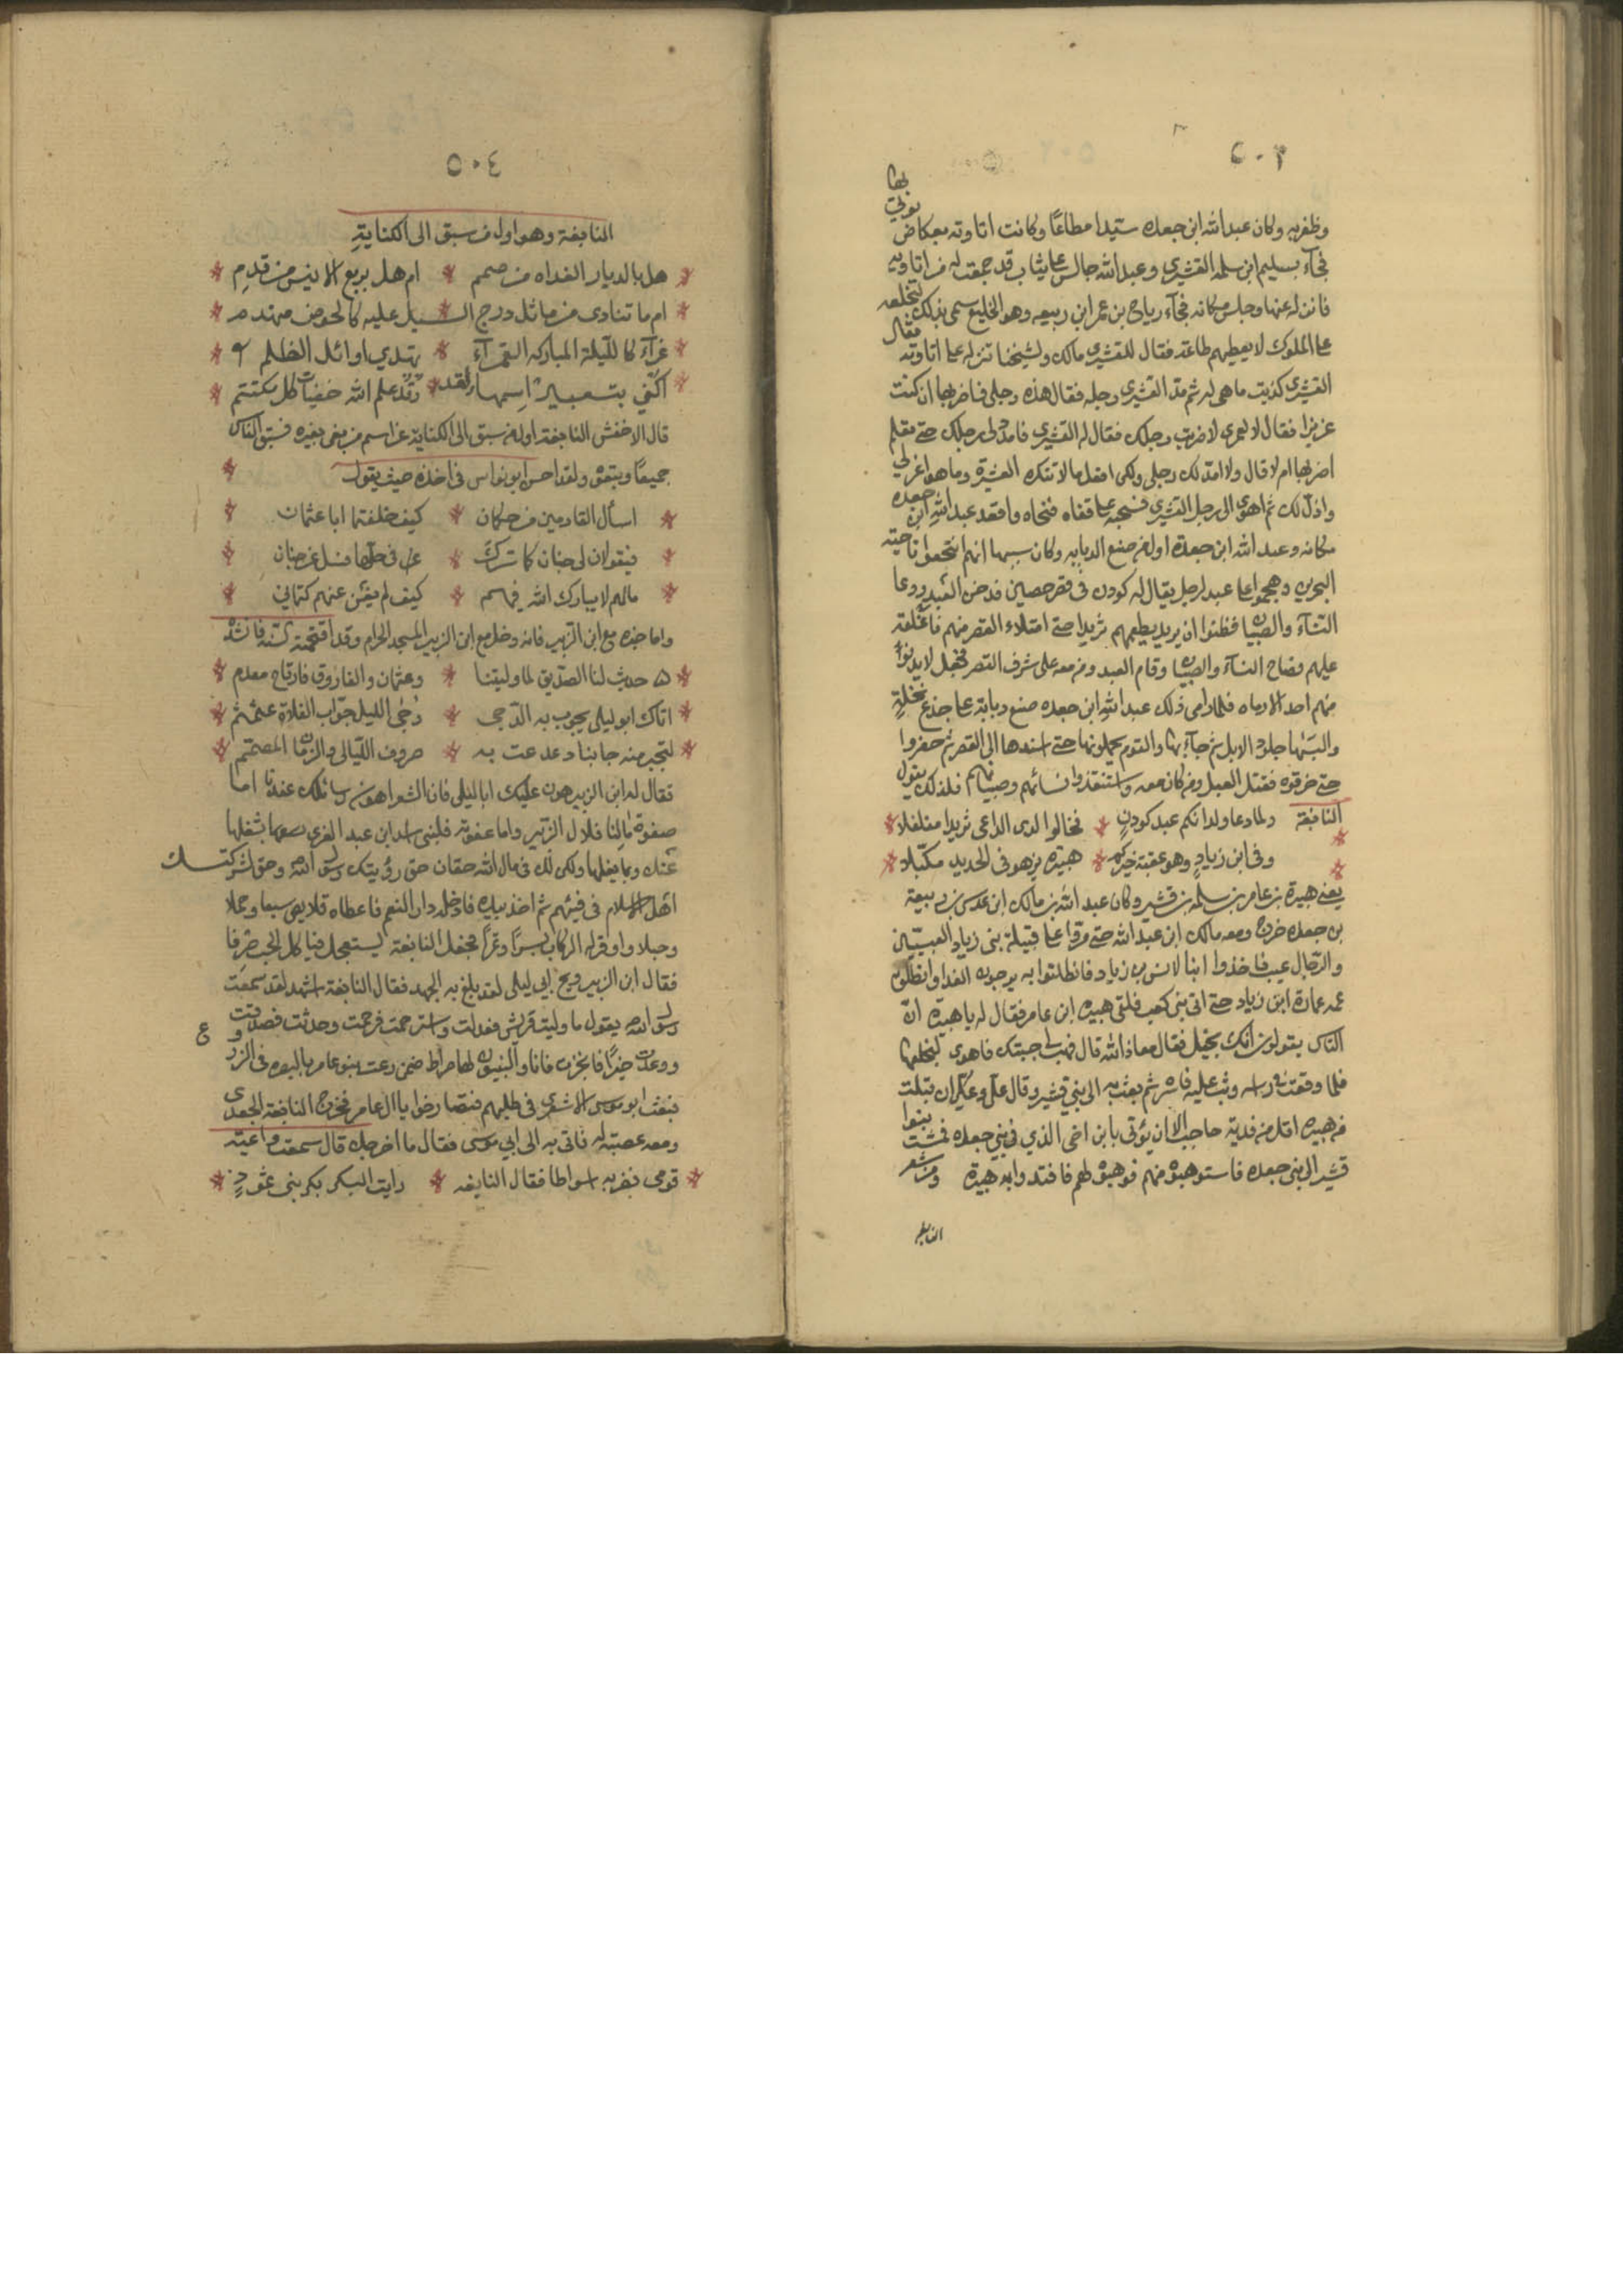 ٥٠٣
وظفر به وكان عبد الله ابن جعده سيدا مطاعًا وكانت اتاوته بعكاض يوتى بها
فجآء بسليم ابن سلمه القشيري وعبد الله جالس على ثياب قد جمعت له من اتاوته
فانزله عنها وجلس مكانه فجآء رياح بن عمر ابن ربيعه وهو الخليع سمى بذلك لتخلعه
على الملوك لا يعطيهم طاعة فقال للقشيري مالك ولشيخنا تنزله على اتاوته فقال
القشيري كذبت ما هي له ثم مد القشيري رجله فقال هذه رجلى فاضربها ان كنت
عزيزا فقال لا لعمري لا ضربت رجلك فقال له القشيري فامدد لى رجلك حتى تعلم
اضربها ام لا قال ولا امد لك رجلى ولكى افعل ما لا تنكره العشيرة وما هو اعز لي
واذل لك ثم اهوى الى رجل القشيري فسحبه على قفاه فنحاه واقعد عبد الله ابن جعده
مكانه وعبد الله ابن جعدة اول من صنع الدبابه وكان سببها انهم انتجعوا ناحية
البحرين وهجموا على عبد لرجل يقال له كودن فى قصر حصين فدخن العبد ودعا
النسآء والصبيان فظنوا ان يريد يطعمهم ثريدا حتى امتلاء القصر منهم فاغلقه
عليهم فصاح النسآء والصبيان وقام العبد ومن معه على شرف القصر فجعل لا يدنوا
منهم احد الا رماه فلما راى ذلك عبد الله ابن جعده صنع دبابة على جذع نخلة
والبسَها جلود الابل ثم جآء بها والقوم يحملونها حتى اسندها الى القصر ثم حفروا
حتى خرقوه فقتل العبد ومن كان معه واستنقذوا نسائهم وصبيانهم فلذلك يقول
النابغة ولما دعا ولدانكم عبد كودنٍ * فخالوا لدى الداعى ثريدا مفلفلا *
* وفى ابن زيادٍ وهو عقبة خيركم * هبيرة يزهو فى الحديد مكبّلا *
يعني هبيرة بن عامر بن سلمه بن قشير وكان عبد الله بن مالك ابن عدس بن ربيعة
بن جعده خرج ومعه مالك ابن عبد الله حتى مرّوا على قبيلة بنى زياد العبسيّين
والرّجال غيب فاخذوا ابنا لانس بن زياد فانطلقوا به يرجون الفدا وانطلق
عمه عمارة ابن زياد حتى اتى بنى كعب فلقى هبيره ابن عامر فقال له يا هبيره انّ
النّاس يقولون انك بخيل فقال معاذ الله قال فهب لي جبتك فاهوى ليخلعها
فلما وقعت فى راسه وثب عليه فاسره ثم بعث به الى بني قشير وقال علىّ وعلىّ ان قبلت
من هبيره اقل من فدية حاجب الا ان يؤتى بابن اخى الذي في بني جعده فمشت بنوا
قشير الى بنى جعده فاستوهبوه منهم فوهبوه لهم فافتدوا به هبيرة ومن شعر
النابغه
٥٠٤
النابغة وهو اول من سبق الى الكناية
* هل بالديار الغداه من صمم * ام هل بربع الانيس من قدم *
* ام ما تنادى من ماثل درج * السيل عليه كالحوض منهدم *
* غرآء كالليلة المباركه القمرآء * تهدي اوائل الظلم *
* اكني بتعبير اسمها ولقد * علم الله خفيات كل مكتتم *
قال الاخفش النابغة اول من سبق الى الكناية عن اسم من يعنى بغيره فسبق الناس
جميعًا ويتقى ولقد احسن ابو نواس فى اخذه حيث يقول *
* اسأل القادمين من حكمان * كيف خلفتما ابا عثمان *
* فيقولان لى جنان كما سرك * فى حالها فسل عن جنان *
* مالهم لا يبارك الله فيهم * كيف لم يغن عنهم كتماني *
واما خبره مع ابن الزبير فانه دخل مع ابن الزبير المسجد الحرام وقد اقحمته السنة فانشده
* حديث لنا الصدّيق لما وليتنا * وعثمان والفاروق فارتاح معدم *
* اتاك ابو ليلى يجوب به الدّجى * دُجى الليل جوّاب الفلاة عثمثم *
* لتجبر منه جانبا دعدعت به * صروف الليالى والزمان المصمّم *
فقال له ابن الزبير هون عليك ابا ليلى فان الشعر اهون وسائلك عندنا اما
صفوة مالنا فلال الزبير واما عفوته فان بنى اسد ابن عبد العزى تشغلها
عنك وتيما معها ولكن لك فى مال الله حقان حق رؤيتك رسول الله وحق لشركتك
اهل الاسلام فى فيئهم ثم اخذ بيده فادخله دار النعم فاعطاه قلايص سبعا وجملا
وخيلا واوقر له الركاب بُرًّا وتمرًا فجعل النابغة يستعجل فياكل الحب صِرفا
فقال ابن الزبير ويح ابي ليلى لقد بلغ به الجهد فقال النابغة اشهد لقد سمعت
رسول الله يقول ما وليت قريش فعدلت واسترحمت فرحمت وحدثت فصدقت
ووعدت خيرًا فانجزت فانا والنبيون لها فراط ضمن رعت بنو عامر بالبصره فى الزرع
فبعث ابو موسى الاشعرى فى طلبهم فتصارخوا يا ال عامر فخرج النابغة الجعدى
ومعه عصبة له فاتى به الى ابي موسى فقال ما اخرجك قال سمعت داعية
* قومى فضربه اسواطا فقال النابغه * رايت البكر بكر بنى ثمودٍ *